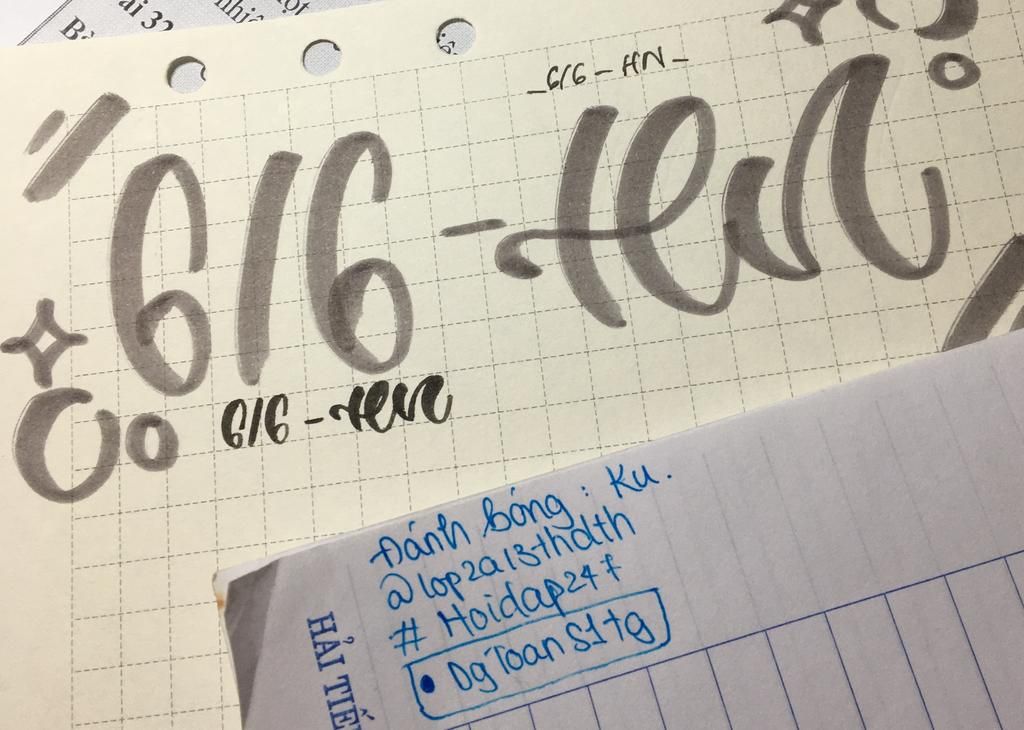 ài 32
nhiê
ột
_ 6/6 - HN _
6/6 - HN
6/6 - HN
Đánh bóng : Ku.
@lop2a13thdth
# Hoidap247
• DgToanS1tg
HẢI TIẾ